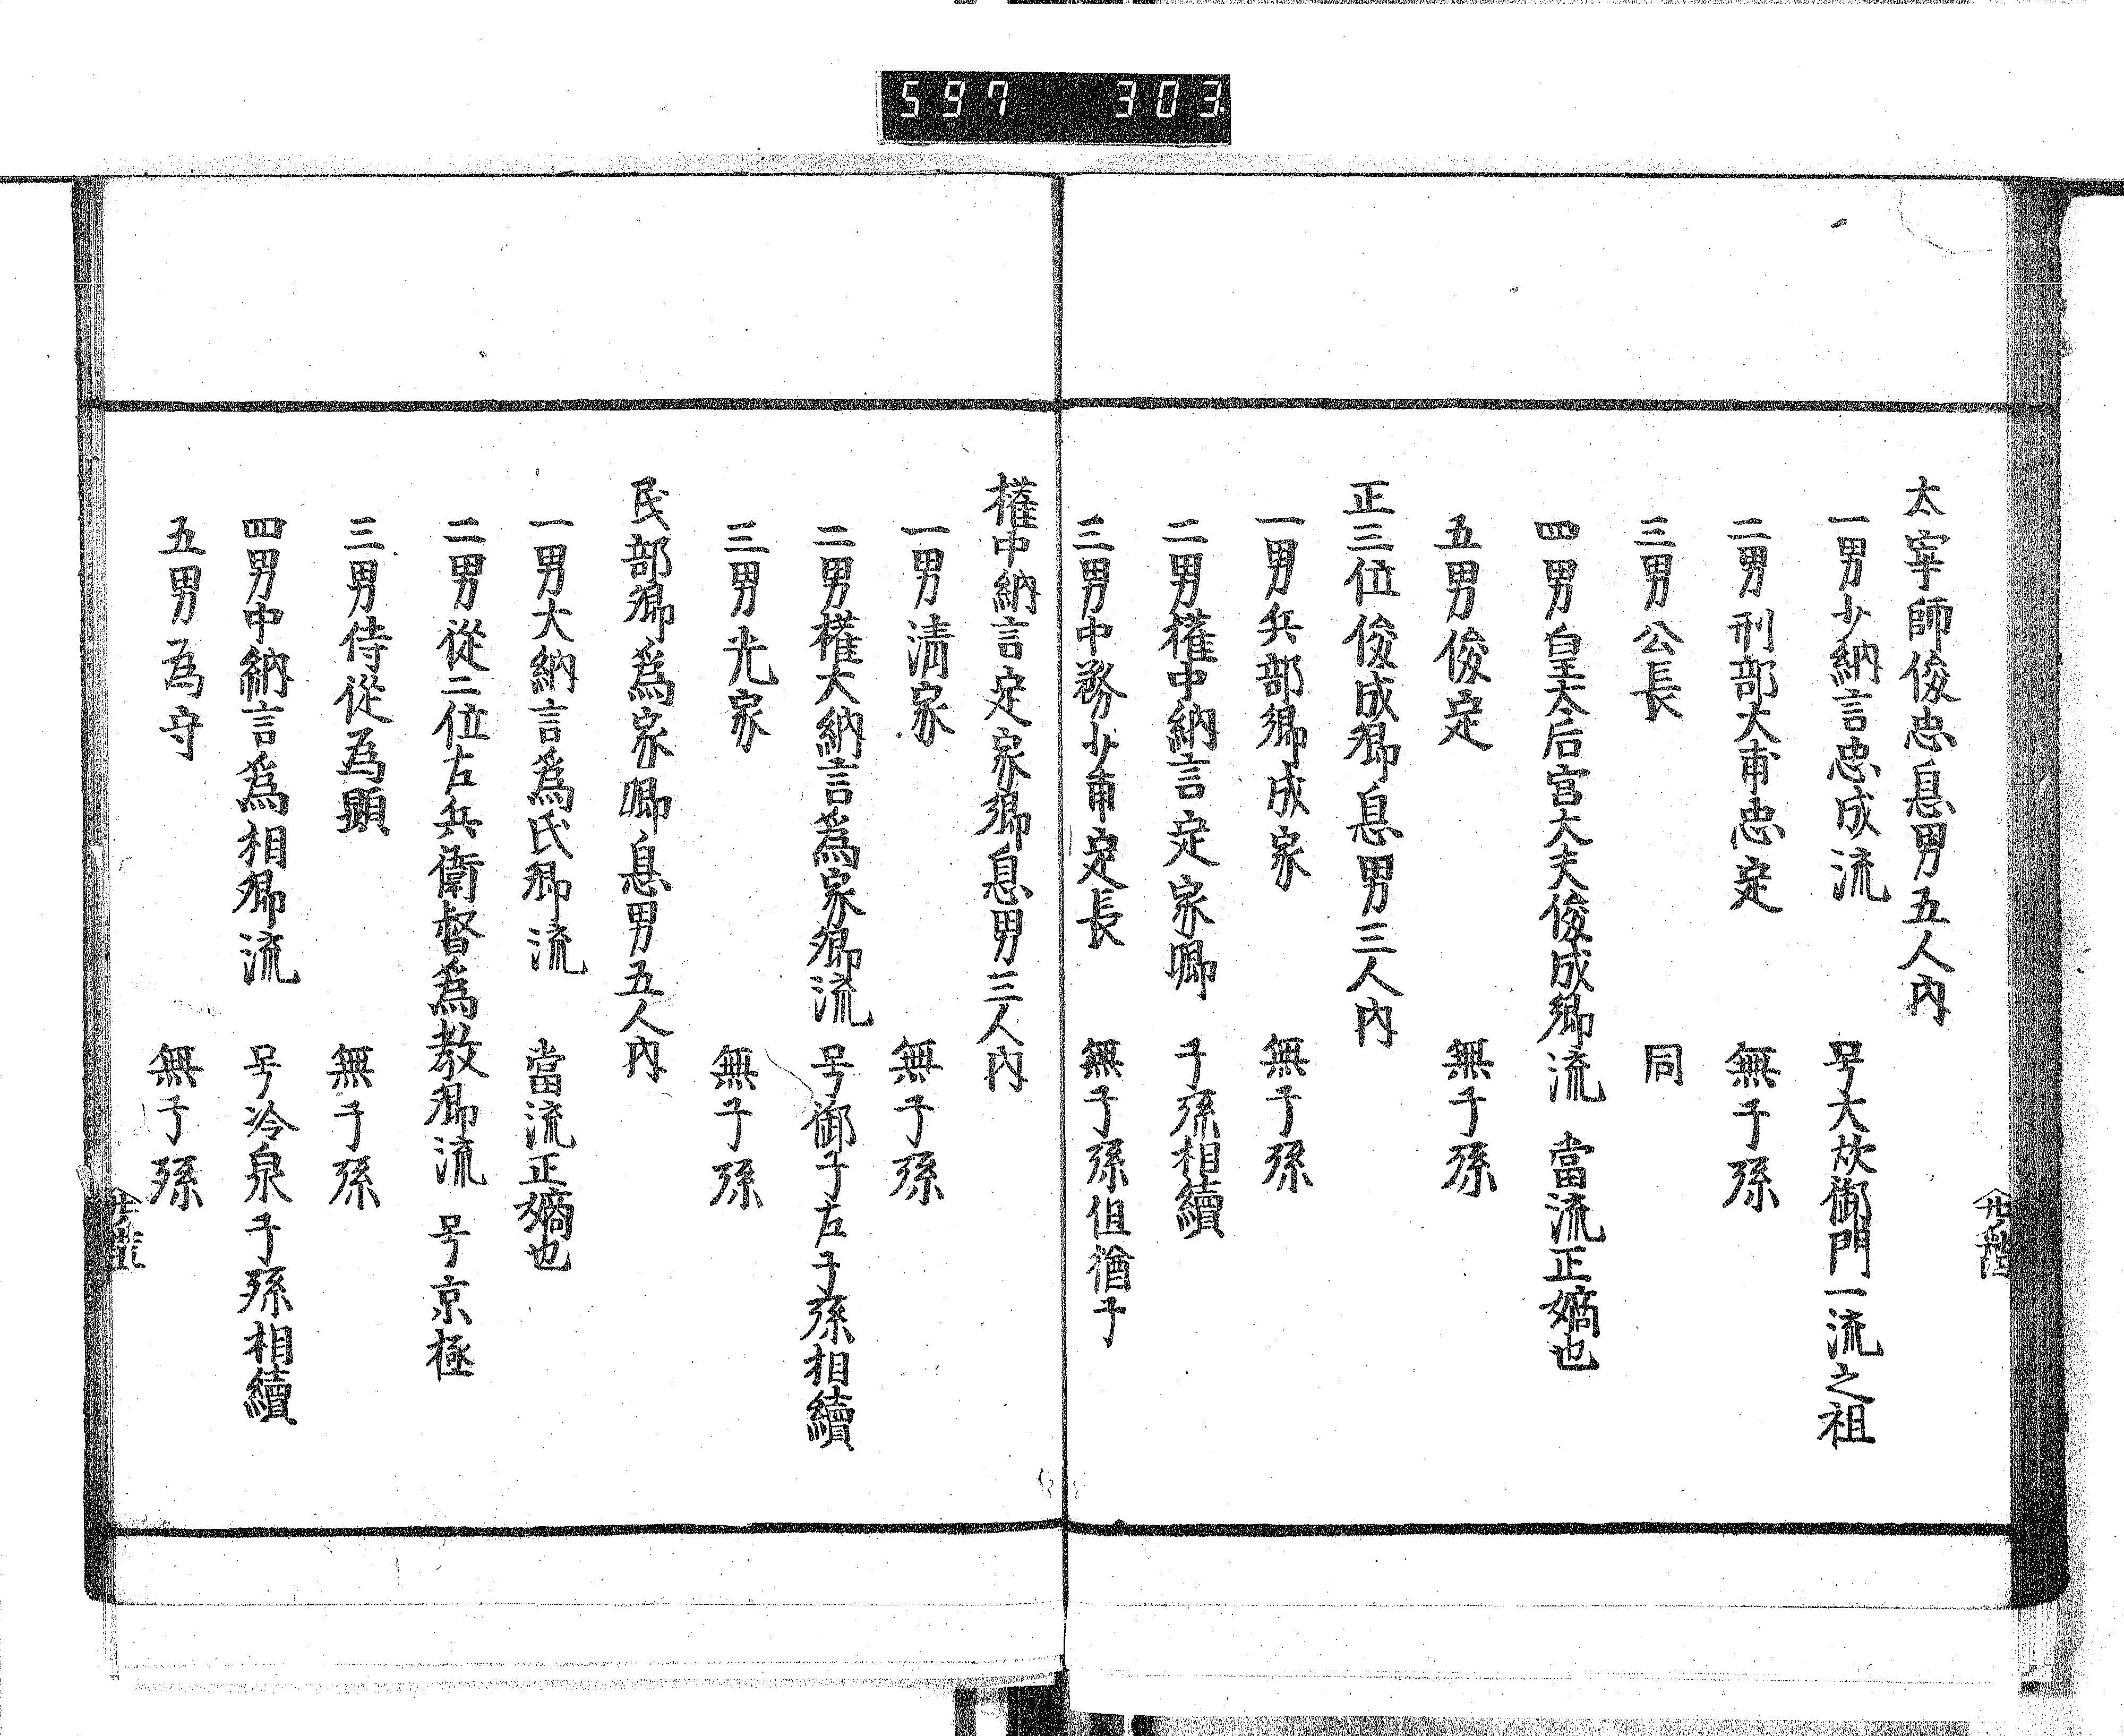 597 303
太宰師俊忠息男五人內
一男少納言忠成流 号大炊御門一流之祖
二男刑部大甫忠定 無子孫
三男公長 同
四男皇太后宮大夫俊成卿流 當流正嫡也
五男俊定 無子孫
正三位俊成卿息男三人內
一男兵部卿成家 無子孫
二男權中納言定家卿 子孫相續
三男中務少甫定長 無子孫但猶子
權中納言定家卿息男三人內
一男淸家 無子孫
二男權大納言爲家卿流 号御子左子孫相續
三男光家 無子孫
民部卿爲家卿息男五人內
一男大納言爲氏卿流 當流正嫡也
二男從二位右兵衛督爲教卿流 号京極
三男侍從為顕 無子孫
四男中納言爲相卿流 号冷泉子孫相續
五男為守 無子孫